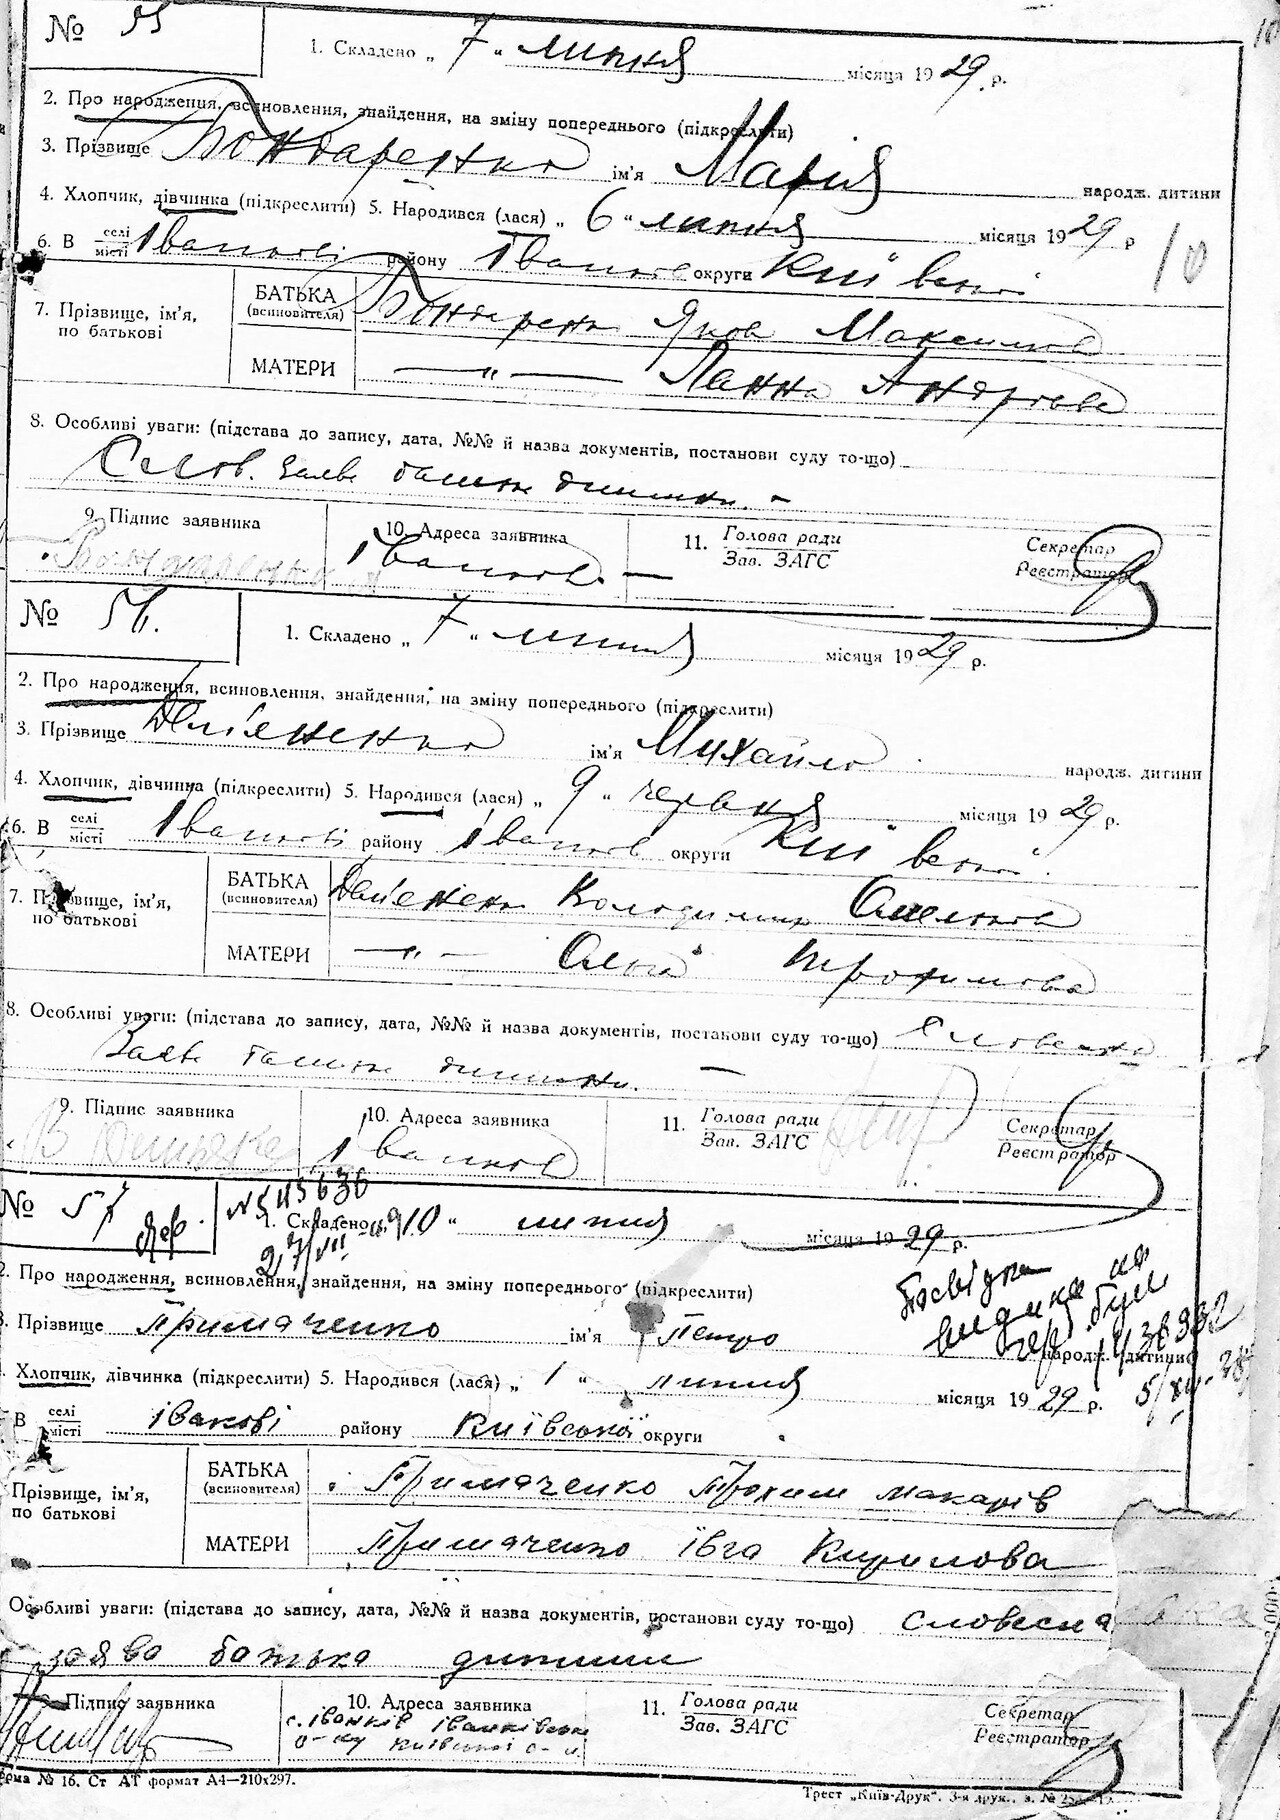 № 55
1. Складено „ 7 “ липня місяця 1929 р.
2. Про народження, всиновлення, знайдення, на зміну попереднього (підкреслити)
3. Прізвище Бондаренко ім'я Марія народж. дитини
4. Хлопчик, дівчинка (підкреслити) 5. Народився (лася) „ 6 “ липня місяця 1929 р
10
6. В селі місті Іванкові району Іванків округи Київській
7. Прізвище, ім'я, по батькові
БАТЬКА (всиновителя) Бондаренко Яков Максимов
МАТЕРИ — „ — Ганна Андріева
8. Особливі уваги: (підстава до запису, дата, №№ й назва документів, постанови суду то-що)
Слов. заява батька дитини. -
9. Підпис заявника 10. Адреса заявника 11. Голова ради Зав. ЗАГС Секретар Реєстратор
Бондаренко Я Іванков. —
№ 56.
1. Складено „ 7 “ липня місяця 1929 р.
2. Про народження, всиновлення, знайдення, на зміну попереднього (підкреслити)
3. Прізвище ім'я Михайло народж. дитини
4. Хлопчик, дівчинка (підкреслити) 5. Народився (лася) „ 9 “ червня місяця 1929 р.
6. В селі місті Іванкові району Іванків округи Київській
7. Прізвище, ім'я, по батькові
БАТЬКА (всиновителя) Володимир
МАТЕРИ — „ — Ольга Трохимова
8. Особливі уваги: (підстава до запису, дата, №№ й назва документів, постанови суду то-що) Словесна
Заява батька дитини. —
9. Підпис заявника 10. Адреса заявника 11. Голова ради Зав. ЗАГС Секретар Реєстратор
Іванков
№ 57
№ 543636
27/VII
1. Складено „ 10 “ липня місяця 1929 р.
2. Про народження, всиновлення, знайдення, на зміну попереднього (підкреслити)
3. Прізвище Примаченко ім'я Петро народж. дитини
5/XII-38
Хлопчик, дівчинка (підкреслити) 5. Народився (лася) „ 1 “ липня місяця 1929 р.
В селі місті Іванкові району Київської округи
Прізвище, ім'я, по батькові
БАТЬКА (всиновителя) Примаченко Трохим Макарів
МАТЕРИ Примаченко Івга Кирилова
Особливі уваги: (підстава до запису, дата, №№ й назва документів, постанови суду то-що) словесна
заява батька дитини
Підпис заявника 10. Адреса заявника 11. Голова ради Зав. ЗАГС Секретар Реєстратор
с. Іванків Іванківськ
о-ку Київської о-и.
рма № 16. Ст АТ формат А4—210х297.
Трест „Київ-Друк“. 3-я друк., з. №